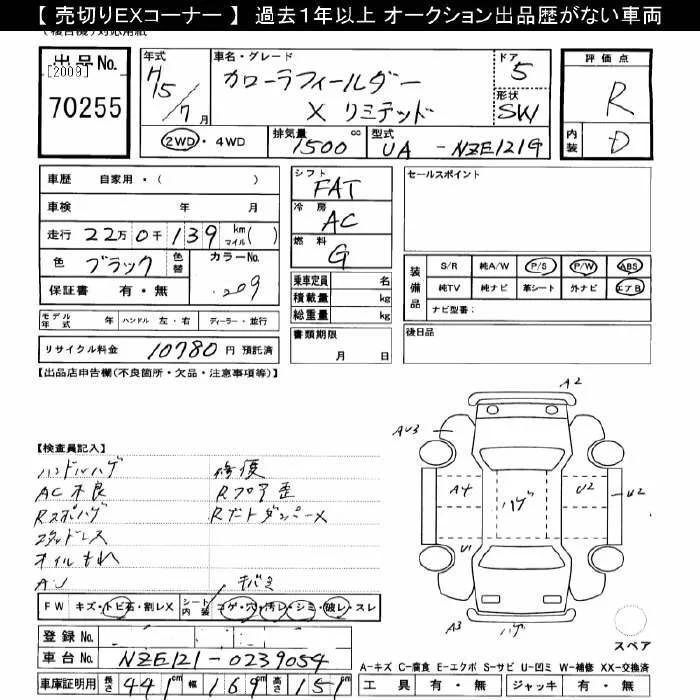 【 売切りEXコーナー 】 過去1年以上 オークション出品歴がない車両
出品No.
[2009]
70255
年式
H15/7月
車名・グレード
カローラフィールダー
X リミテッド
ドア
5
形状
SW
評価点
R
内装
D
2WD・4WD
排気量
1500 cc
型式
UA - NZE121G
車歴 自家用・( )
車検 年 月
走行 22万0千139 km マイル( )
色 ブラック 色替
カラーNo.
209
保証書 有・無
モデル年式 年 ハンドル 左・右 ディーラー・並行
リサイクル料金 10780 円 預託済
シフト
FAT
冷房
AC
燃料
G
乗車定員 名
積載量 kg
総重量 kg
書類期限
月 日
セールスポイント
装備品
S/R 純A/W P/S P/W ABS
純TV 純ナビ 革シート 外ナビ エアB
ナビ型番:
後日品
【出品店申告欄(不良箇所・欠品・注意事項等)】
【検査員記入】
ハンドルハゲ
AC不良
Rスポハゲ
スタッドレス
オイルもれ
AU
修復
Rフロア歪
Rゲートダンパーメ
キバミ
FW キズ・トビ石・割レX
シート内装 コゲ・穴・汚レ・シミ・破レ・スレ
登録No.
車台No. NZE121-0239054
車庫証明用 長さ 441cm 幅 169cm 高さ 151cm
A2
AU3
A4
ハゲ
U2
U2
U1
A3
ハゲ
スペア
A-キズ C-腐食 E-エクボ S-サビ U-凹ミ W-補修 XX-交換済
工具 有・無 ジャッキ 有・無